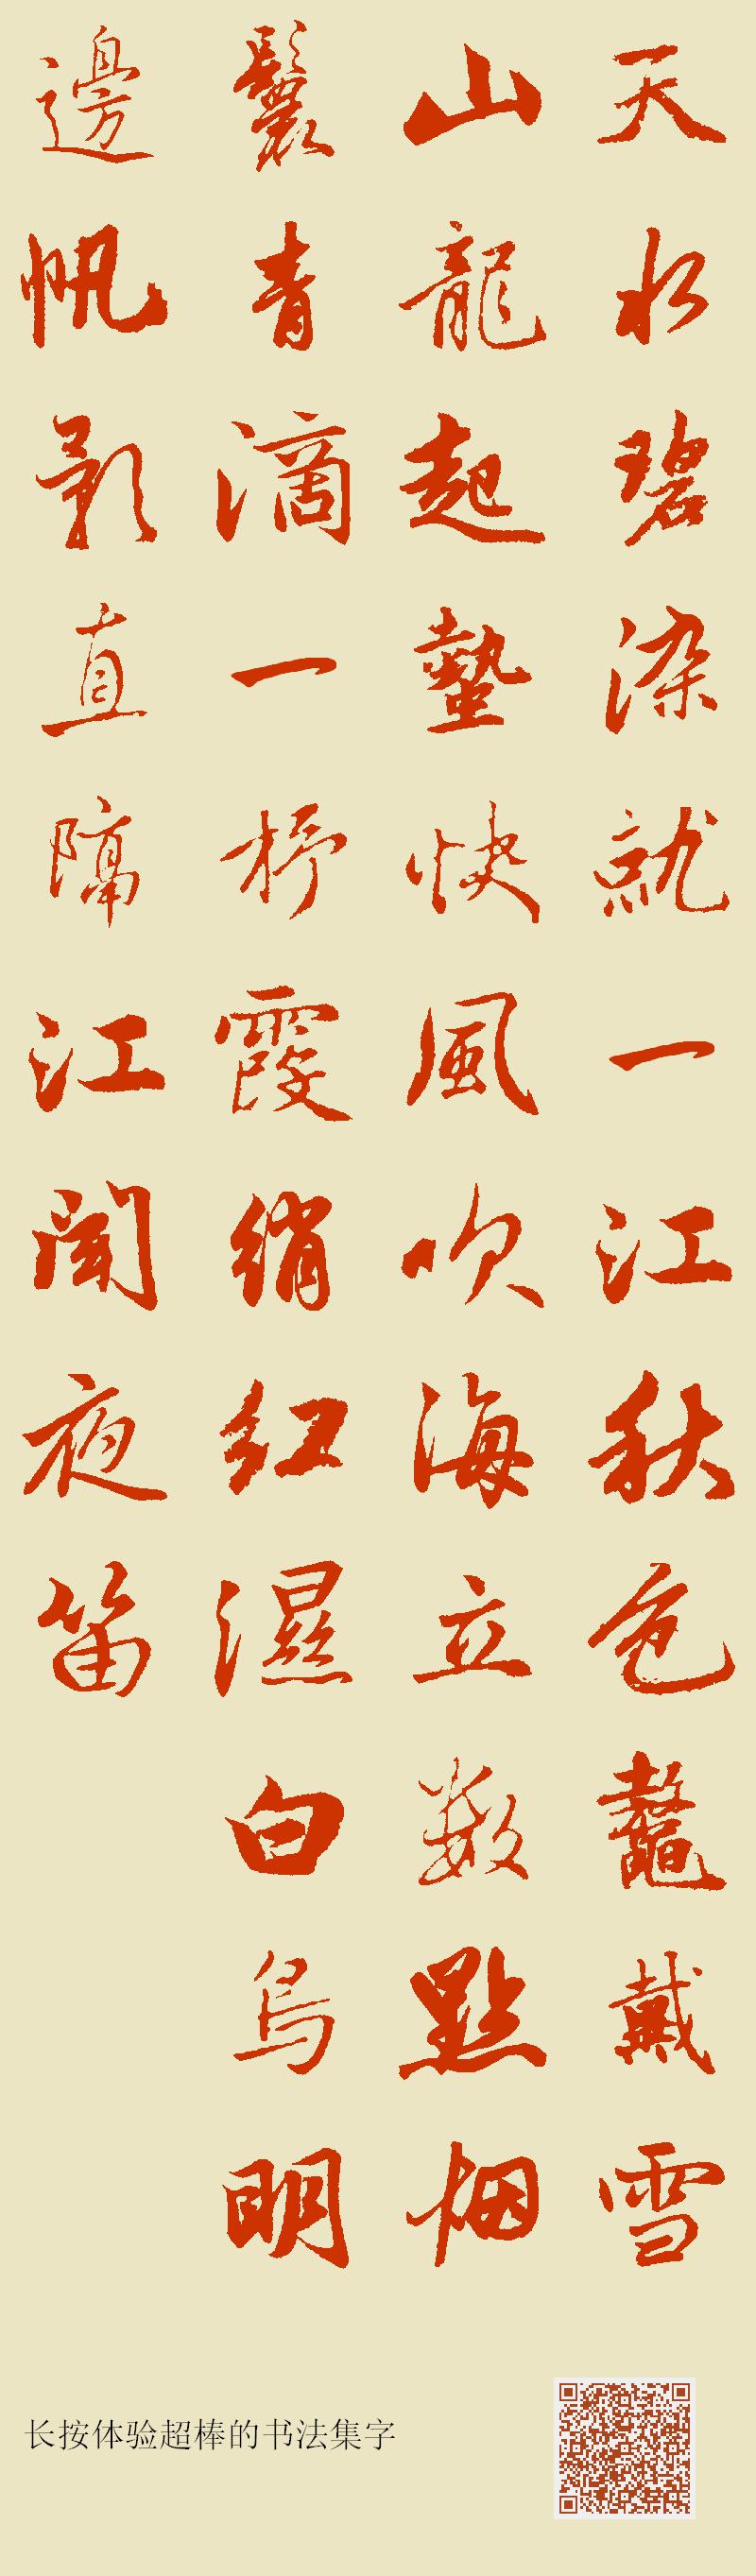 天水碧染就一江秋色鼇戴雪
山龍起蟄快風吹海立数點烟
鬟青滴一杼霞綃紅濕白鳥明
邊帆影直隔江聞夜笛
长按体验超棒的书法集字